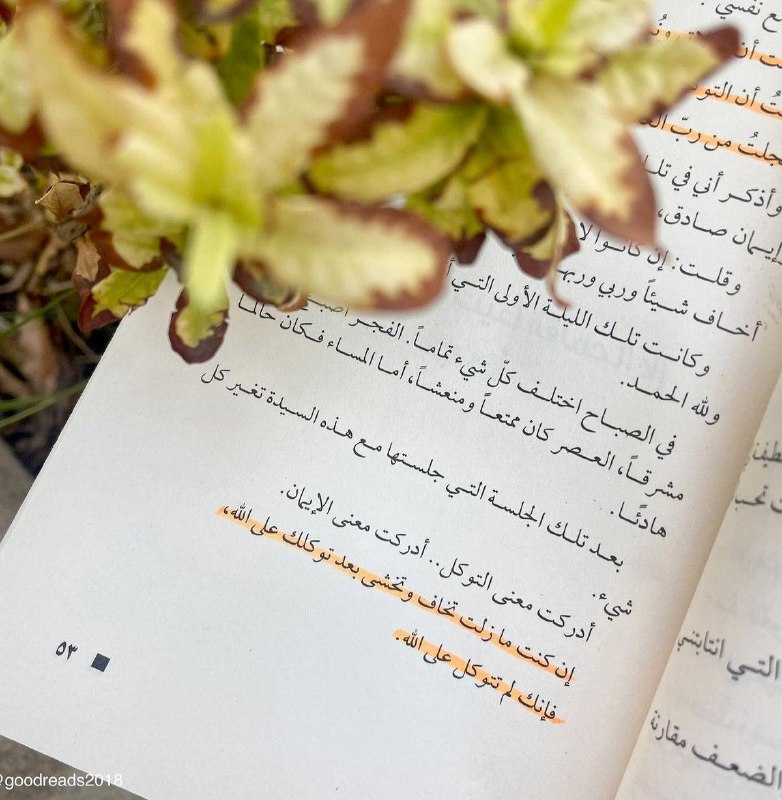 ح نفسي :
وأذكر أني في تلك
إيمان صادق،
وقلت: إن كانوا لا
أخاف شيئاً وربي وربهم
وكانت تلك الليلة الأولى التي
ولله الحمد.
في الصباح اختلف كلّ شيء تماماً. الفجر أصبح
مشرقاً، العصر كان ممتعاً ومنعشاً، أما المساء فكان حالماً
هادئاً.
بعد تلك الجلسة التي جلستها مع هذه السيدة تغير كل
شيء.
أدركت معنى التوكل.. أدركت معنى الإيمان.
إن كنت ما زلت تخاف وتخشى بعد توكلك على الله،
فإنك لم تتوكل على الله.
٥٣
التي انتابتني
الضعف مقارنة
@goodreads2018